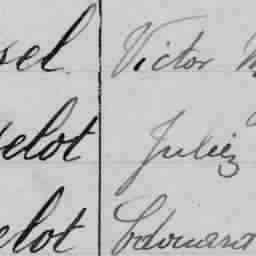 sel Victor
elot Juliez
elot Edouard